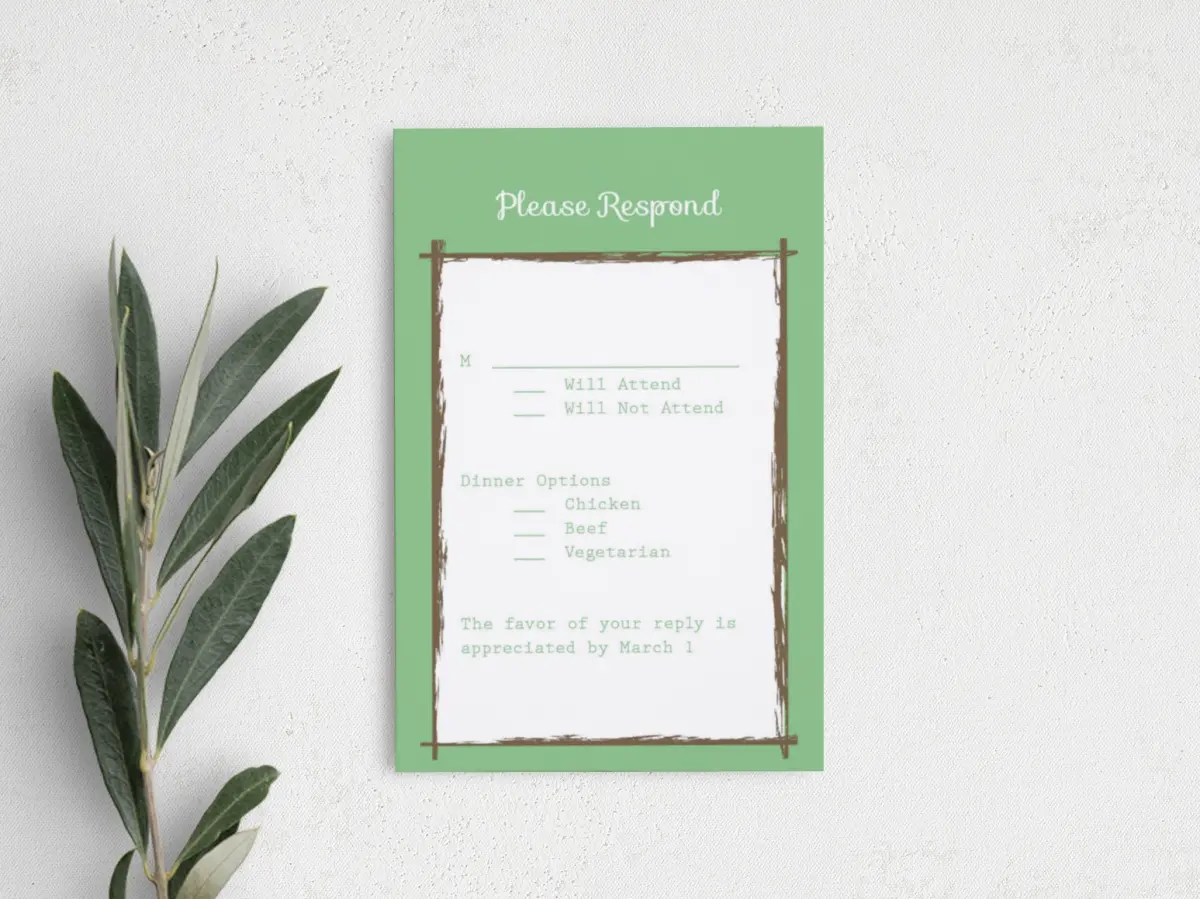 Please Respond
M ____________________
___ Will Attend
___ Will Not Attend
Dinner Options
___ Chicken
___ Beef
___ Vegetarian
The favor of your reply is
appreciated by March 1